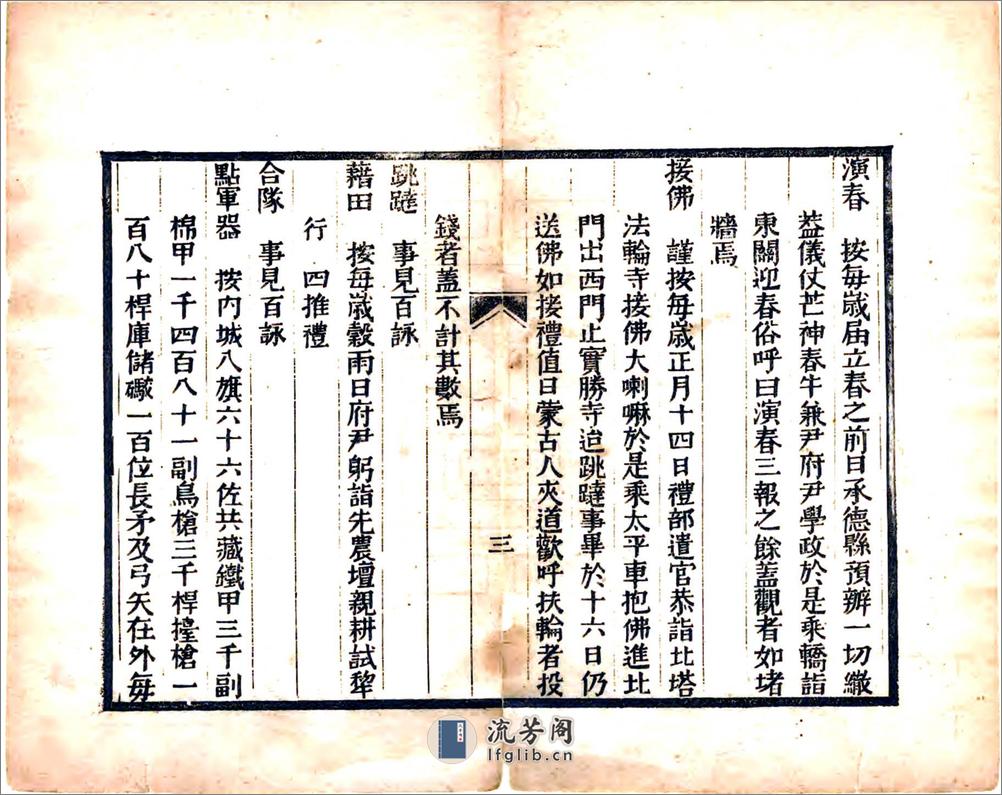 演春　按每歲届立春之前日承德縣預辦一切繖
葢儀仗芒神春牛兼尹府尹學政於是乘轎詣
東關迎春俗呼曰演春三報之餘蓋觀者如堵
牆焉
接佛　謹按每歲正月十四日禮部遣官恭詣北塔
法輪寺接佛大喇嘛於是乘太平車抱佛進北
門出西門止實勝寺迨跳躂事畢於十六日仍
送佛如接禮值日蒙古人夾道歡呼扶輪者投
三
錢者蓋不計其數焉
跳躂　事見百詠
藉田　按每歲穀雨日府尹躬詣先農壇親耕試犂
行　四推禮
合隊　事見百詠
點軍器　按内城八旗六十六佐共藏鐵甲三千副
棉甲一千四百八十一副鳥槍三千桿擡槍一
百八十桿庫儲礮一百位長矛及弓矢在外每
流芳阁
lfglib.cn